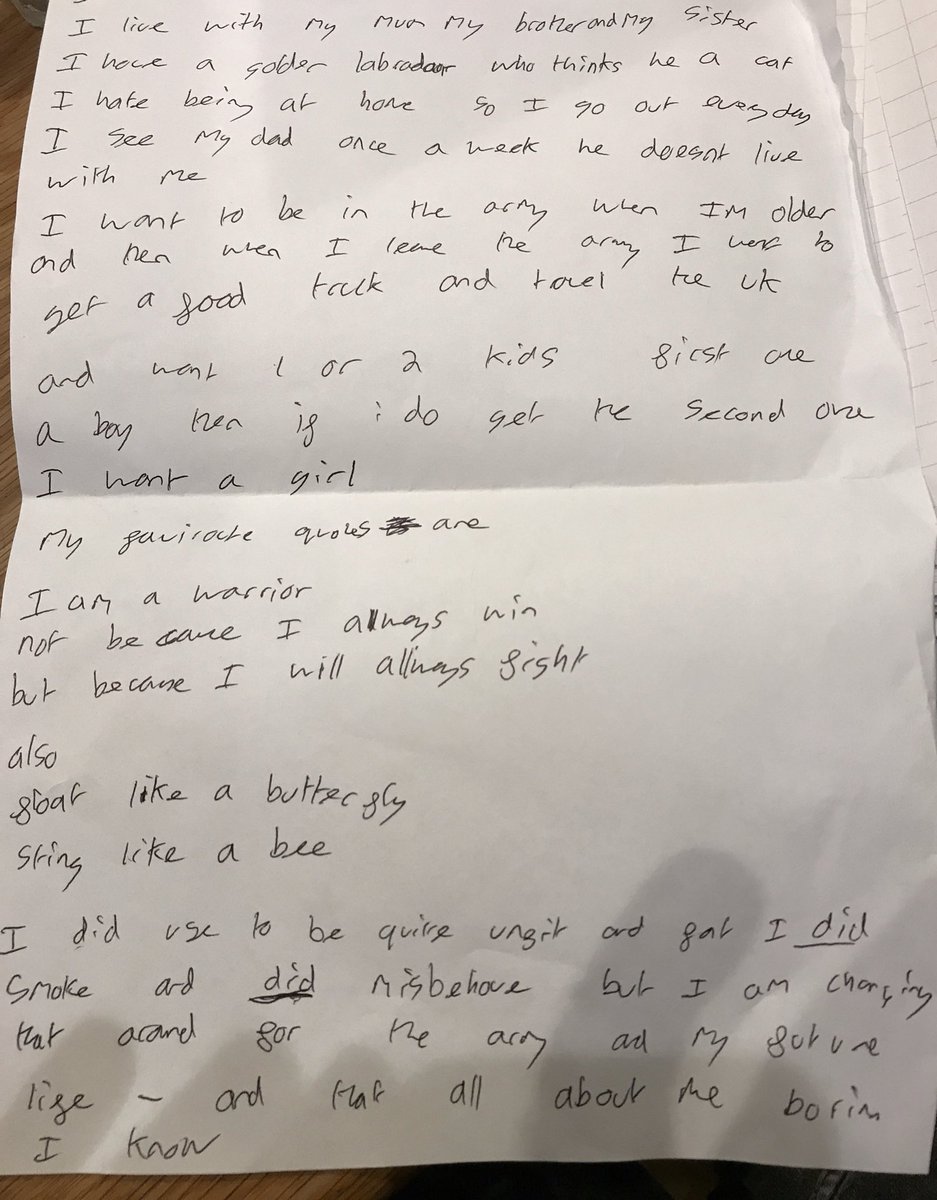 I live with my mum my brother and my sister
I have a golder labradaor who thinks he a cat
I hate being at home so I go out everyday
I see my dad once a week he doesnt live
with me
I want to be in the army when IM older
and then when I leave the army I want to
get a good truck and travel the UK
and want 1 or 2 kids first one
a boy then if i do get the second one
I want a girl
My favirote quotes are
I am a warrior
not because I allways win
but because I will allways fight
also
float like a butterfly
sting like a bee
I did use to be quite unfit and fat I did
smoke and did misbehave but I am changing
that around for the army and my future
life – and that all about me borin
I know